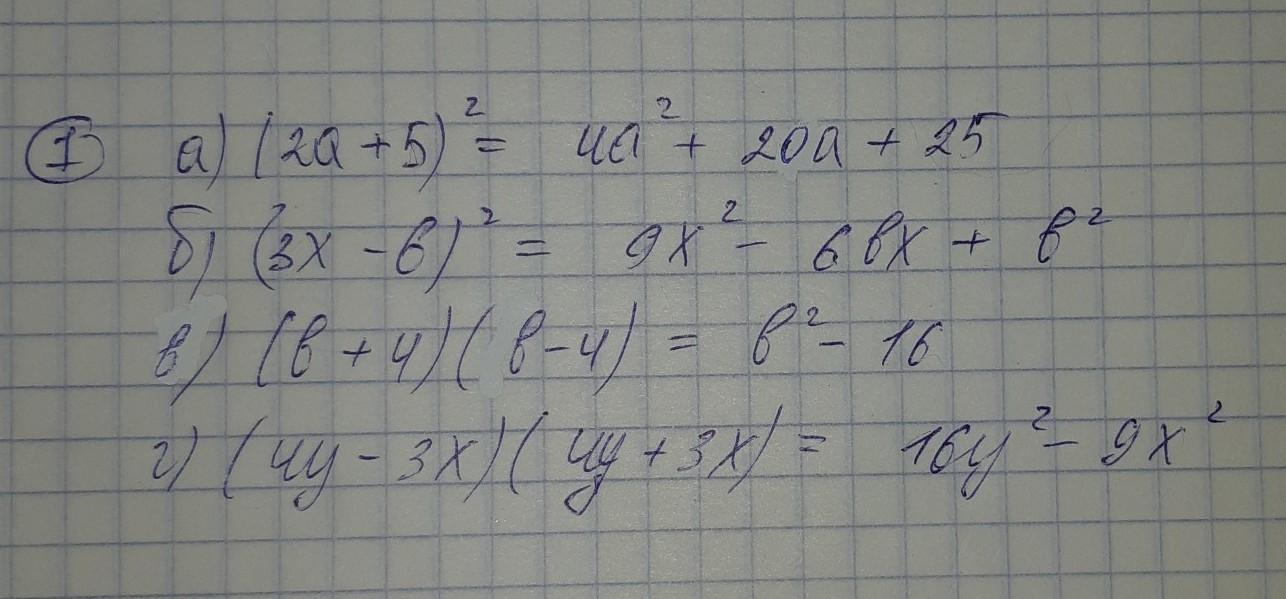 ① а) (2a + 5)² = 4a² + 20a + 25
б) (3x - b)² = 9x² - 6bx + b²
в) (b + 4)(b - 4) = b² - 16
г) (4y - 3x)(4y + 3x) = 16y² - 9x²